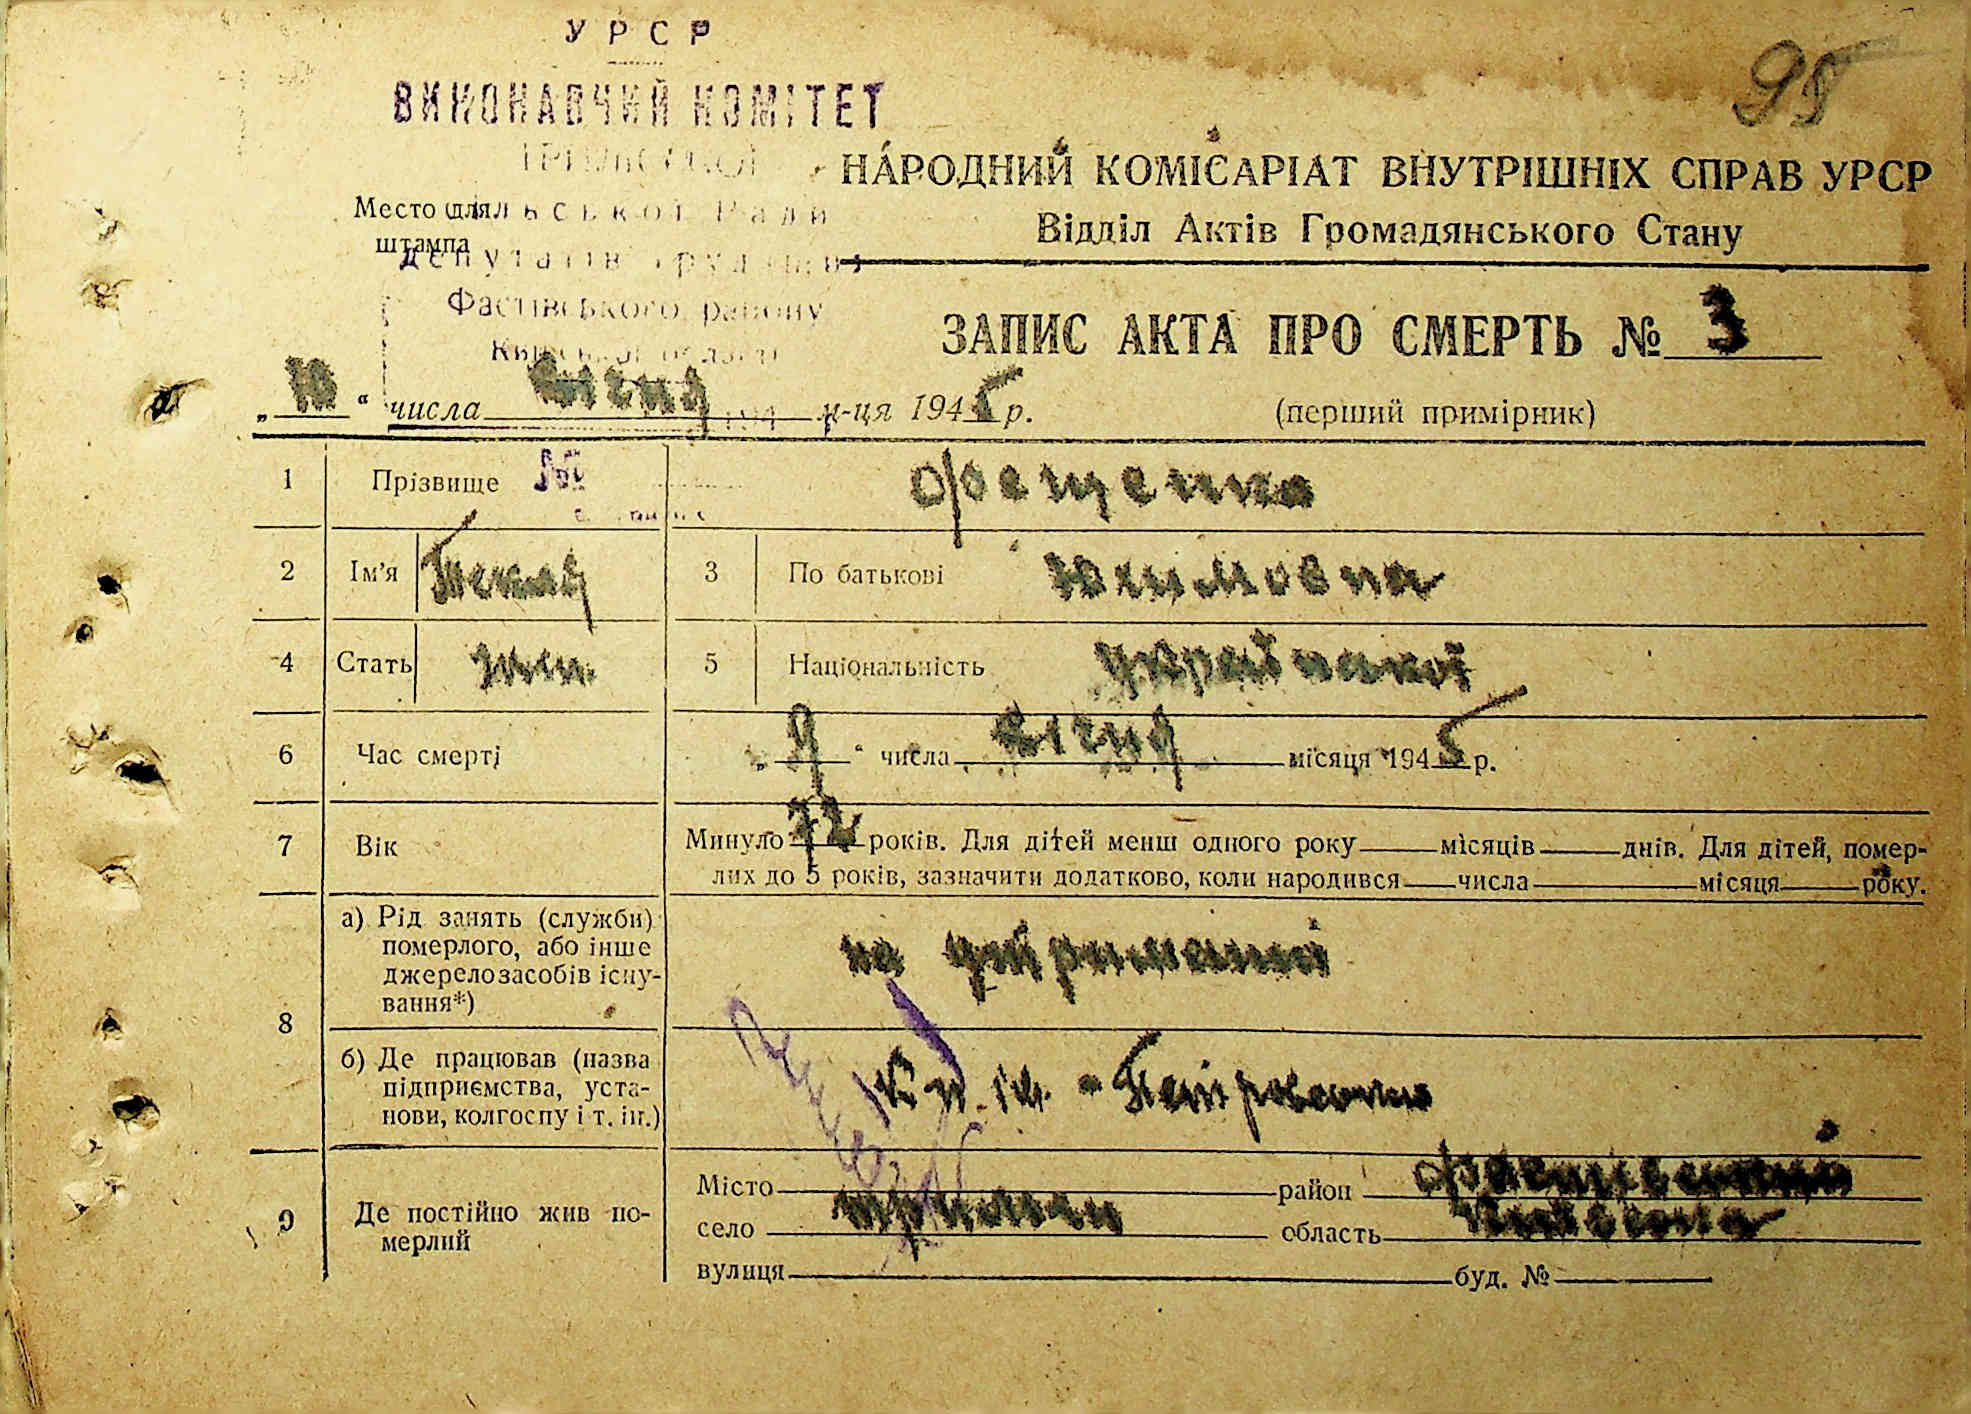 УРСР
95
ВИКОНАВЧИЙ КОМІТЕТ
НАРОДНИЙ КОМІСАРІАТ ВНУТРІШНІХ СПРАВ УРСР
Место для
сільської Ради
Відділ Актів Громадянського Стану
штампа
депутатів трудящих
Фастівського району
Київської області
ЗАПИС АКТА ПРО СМЕРТЬ № 3
„10“ числа січня м-ця 1945 р. (перший примірник)
1 Прізвище Фещенко
2 Ім'я Текля 3 По батькові Юхимовна
4 Стать жін. 5 Національність української
6 Час смерті „9“ числа січня місяця 1945 р.
7 Вік Минуло 72 років. Для дітей менш одного року місяців днів. Для дітей, помер-
лих до 5 років, зазначити додатково, коли народився числа місяця року.
8 а) Рід занять (служби)
померлого, або інше
джерело засобів існу-
вання*)
на утриманні
б) Де працював (назва
підприємства, уста-
нови, колгоспу і т. ін.)
9 Де постійно жив по-
мерлий
Місто район Фастівський
село область Київська
вулиця буд. №